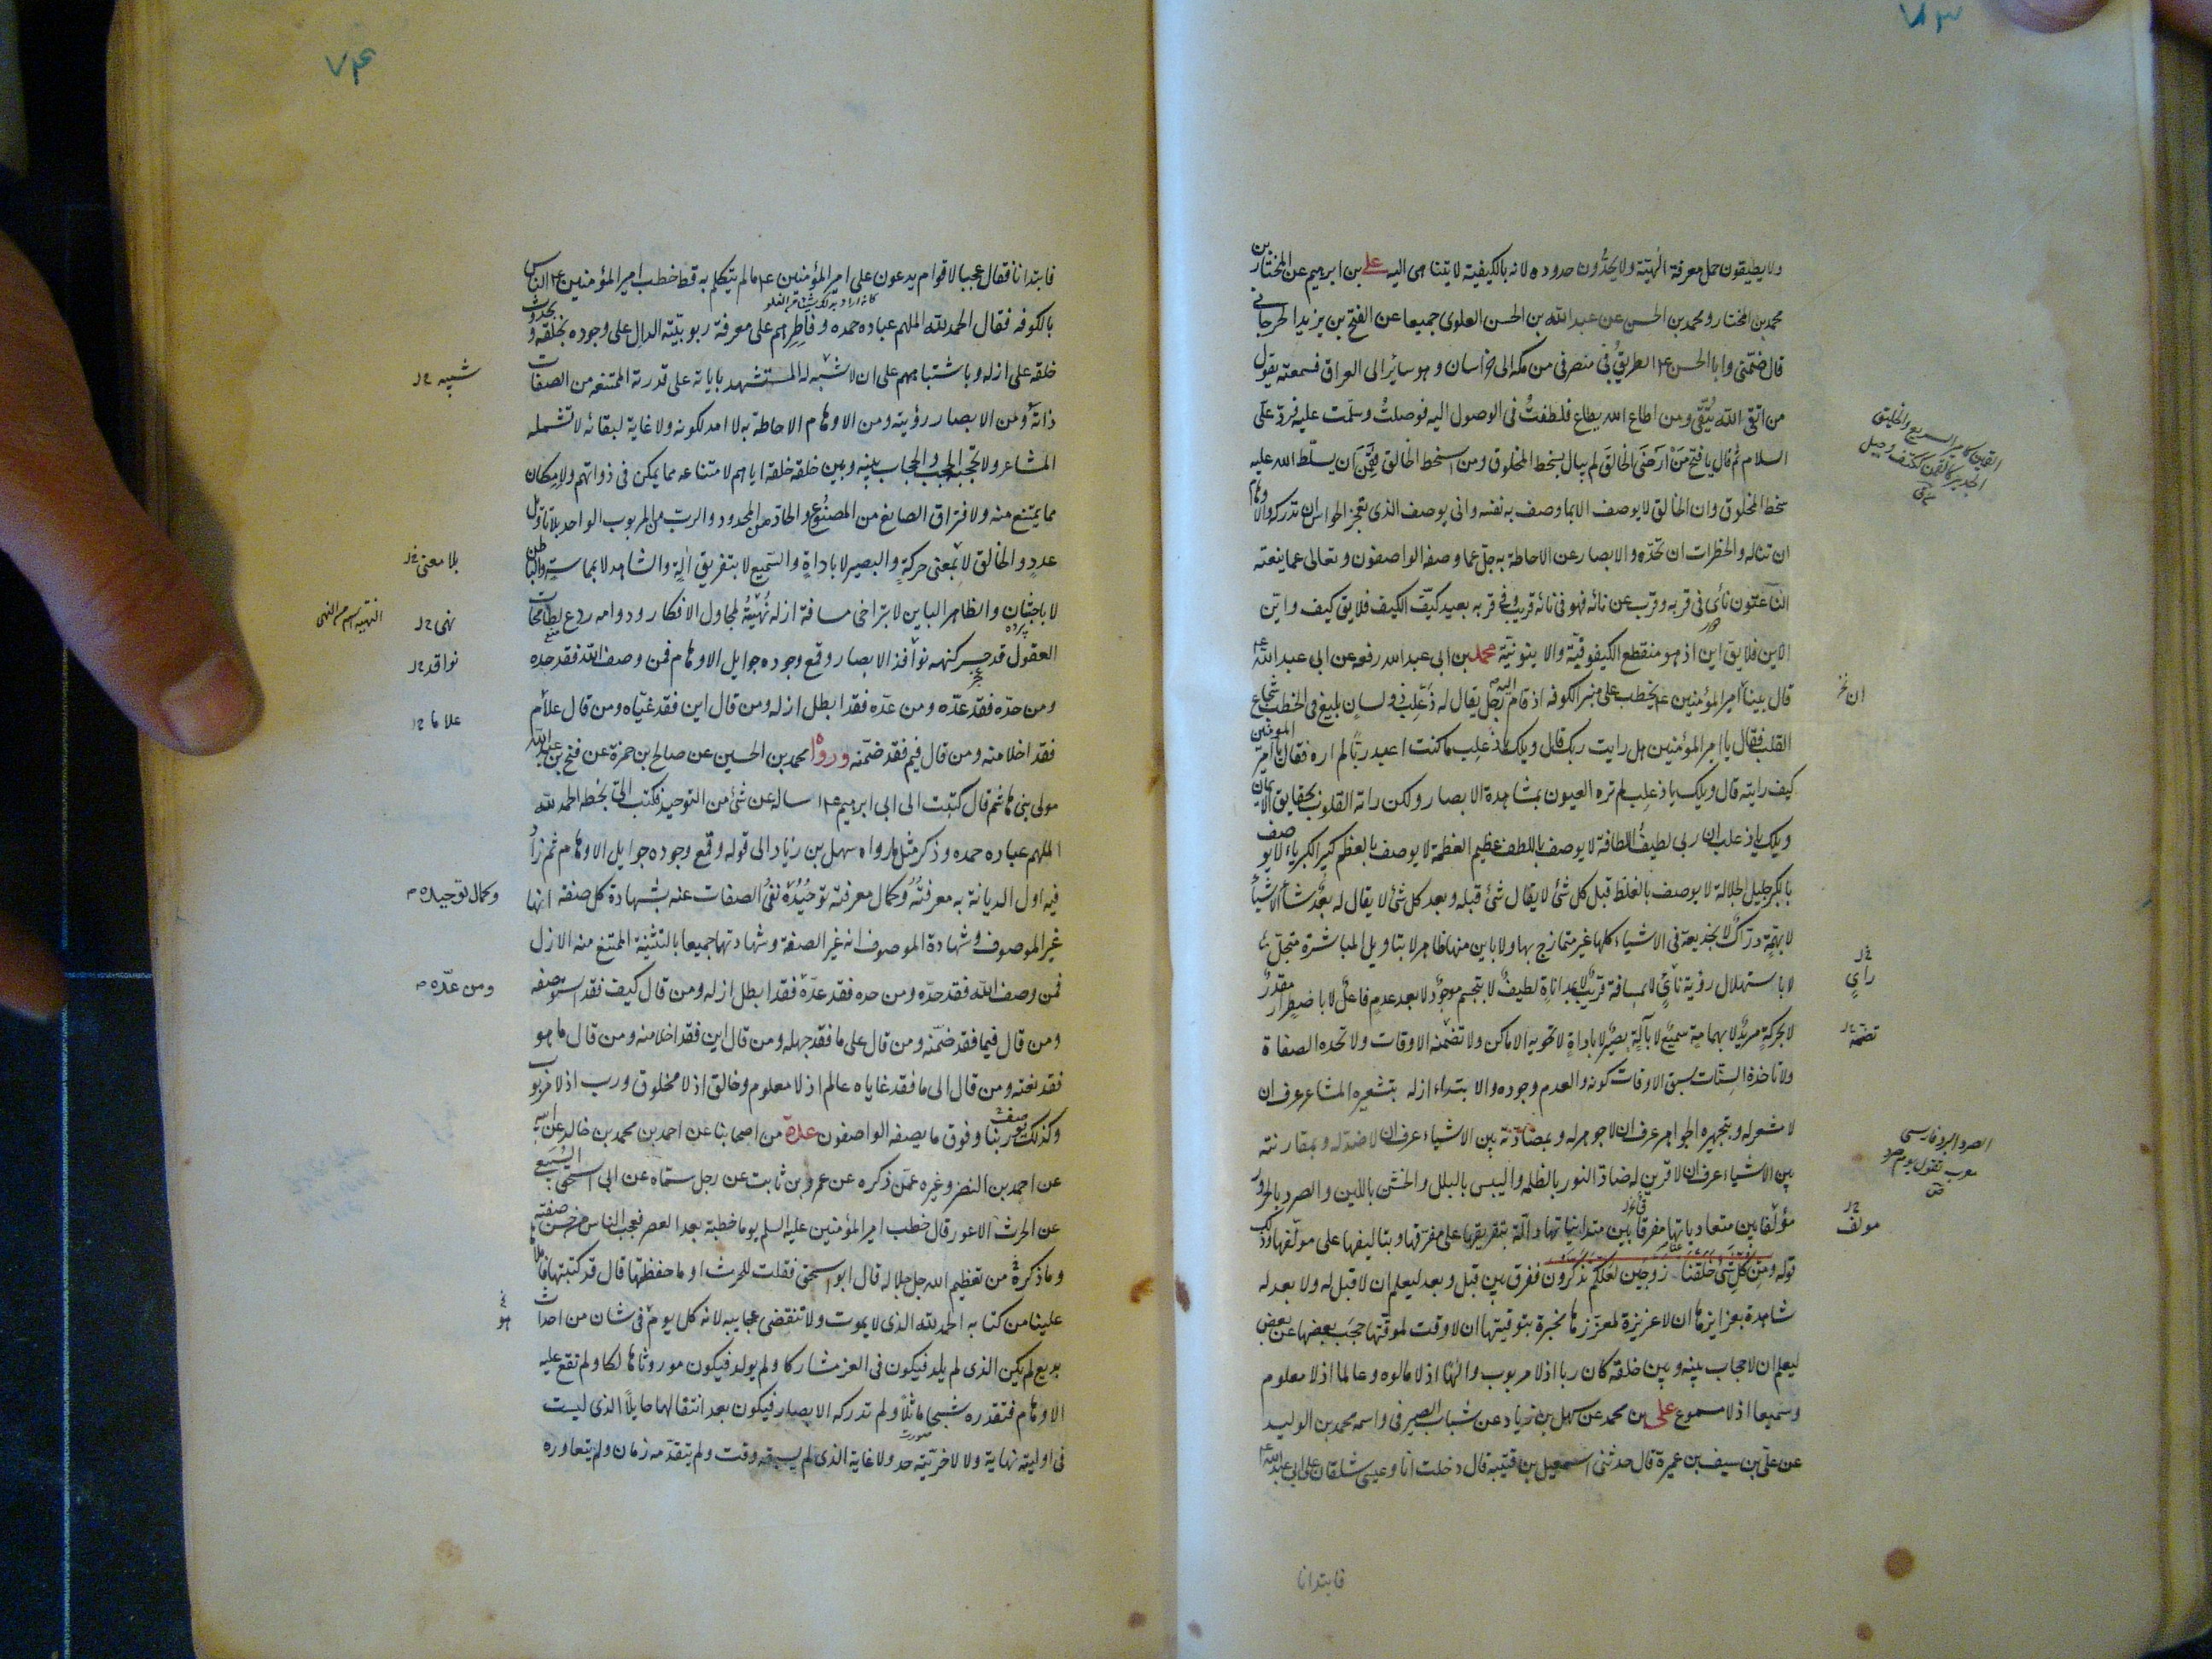 ٧٣
ولا يطيقون حمل معرفة الهيته ولا يحدّون حدوده لانه بالكيفية لا يتناهى اليه على بن ابرهيم عن المختار بن
محمد بن المختار و محمد بن الحسن عن عبد الله بن الحسن العلوى جميعا عن الفتح بن يزيد الجرجانى
قال ضمّنى وابا الحسن ع الطريق فى منصرفى من مكه الى خراسان وهو ساير الى العراق فسمعته يقول
من اتقى الله يُتّقى ومن اطاع الله يطاع فلطفتُ فى الوصول اليه فوصلتُ وسلّمت عليه فردّ علىّ
السلام ثم قال يا فتح مَنْ ارضَى الخالقَ لم يبال بسخط المخلوق ومن اسخط الخالق فقَمِن ان يسلّط الله عليه
سخط المخلوق وان الخالق لا يوصف الا بما وصف به نفسه وانى يوصف الذى تعجز الحواس ان تدركه والاوهام
ان تناله والخطرات ان تحدّه والابصار عن الاحاطة به جلّ عما وصفه الواصفون وتعالى عما ينعته
الناعتون نأى فى قربه وقرب عن نائه فهو فى نائه قريب وفى قربه بعيد كيّف الكيف فلا يق كيف واين
الاين فلا يق اين اذ هو منقطع الكيفوفية والاينونيّة محمد بن ابى عبد الله رفعه عن ابى عبد الله ع
قال بينا امير المؤمنين ع يخطب على منبر الكوفه اذ قام اليه رجل يقال له ذعلب ذو لسان بليغ فى الخطب شجاع
القلب فقال يا امير المؤمنين هل رايت ربك قال ويلك يا ذعلب ما كنت اعبد ربّا لم اره فقال يا امير المؤمنين
كيف رايته قال ويلك يا ذعلب لم تره العيون بمشاهدة الابصار ولكن راته القلوب بحقايق الايمان
ويلك يا ذعلب ان ربى لطيف اللطافة لا يوصف باللطف عظيم العظمة لا يوصف بالعظم كبير الكبرياء لا يوصف
بالكبر جليل الجلالة لا يوصف بالغلظ قبل كل شئ لا يقال شئ قبله وبعد كل شئ لا يقال له بعد شاء الاشياء
لا بهمّة درّاك لا بخديعة فى الاشياء كلها غير متمازج بها ولا باين منها ظاهر لا بتاويل المباشرة متجلّ
لا باستهلال رؤية نائ لا بمسافة قريب لا بمداناة لطيف لا بتجسم موجود لا بعد عدم فاعل لا باضطرار مقدر
لا بحركة مريد لا بهمامة سميع لا بآلة بصير لا باداة لا تحويه الاماكن ولا تضمّنه الاوقات ولا تحده الصفاة
ولا تاخذه السنات سبق الاوقات كونه والعدم وجوده والابتداء ازله بتشعيره المشاعر عرف ان
لا مشعر له وبتجهيره الجواهر عرف ان لا جوهر له وبمضادته بين الاشياء عرف ان لا ضد له وبمقارنته
بين الاشياء عرف ان لا قرين له ضاد النور بالظلمه واليبس بالبلل والخشن باللين والصرد بالحرور
مؤلفا بين متعادياتها مفرقا بين متدانياتها دالّة بتفريقها على مفرّقها وبتاليفها على مولّفها وذلك
قوله ومن كل شئ خلقنا زوجين لعلكم تذكرون ففرق بين قبل وبعد ليعلم ان لا قبل له ولا بعد له
شاهدة بغرايزها ان لا غريزة لمغرّزها مخبرة بتوقيتها ان لا وقت لموقّتها حجب بعضها عن بعض
ليعلم ان لا حجاب بينه وبين خلقه كان ربا اذ لا مربوب والهًا اذ لا مالوه وعالما اذ لا معلوم
وسميعا اذ لا مسموع على بن محمد عن سهل بن زياد عن شباب الصيرفى واسمه محمد بن الوليد
عن على بن سيف بن عميرة قال حدثنى اسمعيل بن قتيبه قال دخلت انا وعيسى شلقان على ابى عبد الله ع
فابتدانا
القمين كامير السريع والخليق
الجدير كالقمن ككتف وجبل
ان خ
راىٍ
تضمّنه
الصرد البرد فارسى
معرب تقول يوم صرد
مولف
٧٤
فابتدانا فقال عجبا لاقوام يدعون على امير المؤمنين ع ما لم يتكلم به قط خطب امير المؤمنين ع الناس
بالكوفه فقال الحمد لله الملهم عباده حمده وفاطرهم على معرفة ربوبيّته الدال على وجوده بخلقه وبحدوث
خلقه على ازله وباشتباههم على ان لا شبه له المستشهد باياته على قدرته الممتنعه من الصفات
ذاته ومن الابصار رؤيته ومن الاوهام الاحاطة به لا امد لكونه ولا غاية لبقائه لا تشمله
المشاعر ولا تحجبه الحجب والحجاب بينه وبين خلقه خلقه اياهم لامتناعه مما يمكن فى ذواتهم ولامكان
مما يمتنع منه ولافتراق الصانع من المصنوع والحاد من المحدود والرب من المربوب الواحد بلا تاويل
عدد والخالق لا بمعنى حركة والبصير لا باداةٍ والسميع لا بتفريق آلة والشاهد لا بمماسة والباطن
لا باجتنان والظاهر الباين لا بتراخى مسافة ازله نُهْيَةُ لمجاول الافكار ودوامه ردع لطامحات
العقول قد حسر كنهه نوافذ الابصار وقمع وجوده جوايل الاوهام فمن وصف الله فقد حده
ومن حدّه فقد عدّه ومن عدّه فقد ابطل ازله ومن قال اين فقد غيّاه ومن قال علام
فقد اخلا منه ومن قال فيم فقد ضمّنه ورواه محمد بن الحسين عن صالح بن حمزة عن فتح بن عبد الله
مولى بنى هاشم قال كتبت الى ابى ابرهيم ع اساله عن شئ من التوحيد فكتب الىّ بخطه الحمد لله
الملهم عباده حمده وذكر مثل ما رواه سهل بن زياد الى قوله وقمع وجوده جوايل الاوهام ثم زاد
فيه اول الديانة به معرفته وكمال معرفته توحيده نفى الصفات عنه بشهادة كل صفة انها
غير الموصوف وشهادة الموصوف انه غير الصفة وشهادتهما جميعا بالتثنية الممتنع منه الازل
فمن وصف الله فقد حدّه ومن حده فقد عدّه فقد ابطل ازله ومن قال كيف فقد استوصفه
ومن قال فيما فقد ضمّنه ومن قال على ما فقد جهله ومن قال اين فقد اخلا منه ومن قال ما هو
فقد نعته ومن قال الى ما فقد غاياه عالم اذ لا معلوم وخالق اذ لا مخلوق ورب اذ لا مربوب
وكذلك يوصف ربنا وفوق ما يصفه الواصفون عدة من اصحابنا عن احمد بن محمد بن خالد عن ابيه
عن احمد بن النضر وغيره عمن ذكره عن عمرو بن ثابت عن رجل سمّاه عن ابى اسحق السبيعى
عن الحرث الاعور قال خطب امير المؤمنين عليه السلم يوما خطبة بعد العصر فعجب الناس من حسن صفته
وما ذكره من تعظيم الله جل جلاله قال ابو اسحق فقلت للحرث او ما حفظتها قال قد كتبتها فاملاها
علينا من كتابه الحمد لله الذى لا يموت ولا تنقضى عجايبه لانه كل يوم فى شان من احداث
بديع لم يكن الذى لم يلد فيكون فى العز مشاركا ولم يولد فيكون موروثا هالكا ولم تقع عليه
الاوهام فتقدره شبحا ماثلًا ولم تدركه الابصار فيكون بعد انتقالها حايلًا الذى ليست
فى اوليته نهاية ولا لاخريّته حد ولا غاية الذى لم يسبقه وقت ولم يتقدّمه زمان ولم يتعاوره
شبيه
بلا معنى
نهى
النهية اسم من النهى
نواقد
علا ما
وكمال توحيده
ومن عدّه
هو